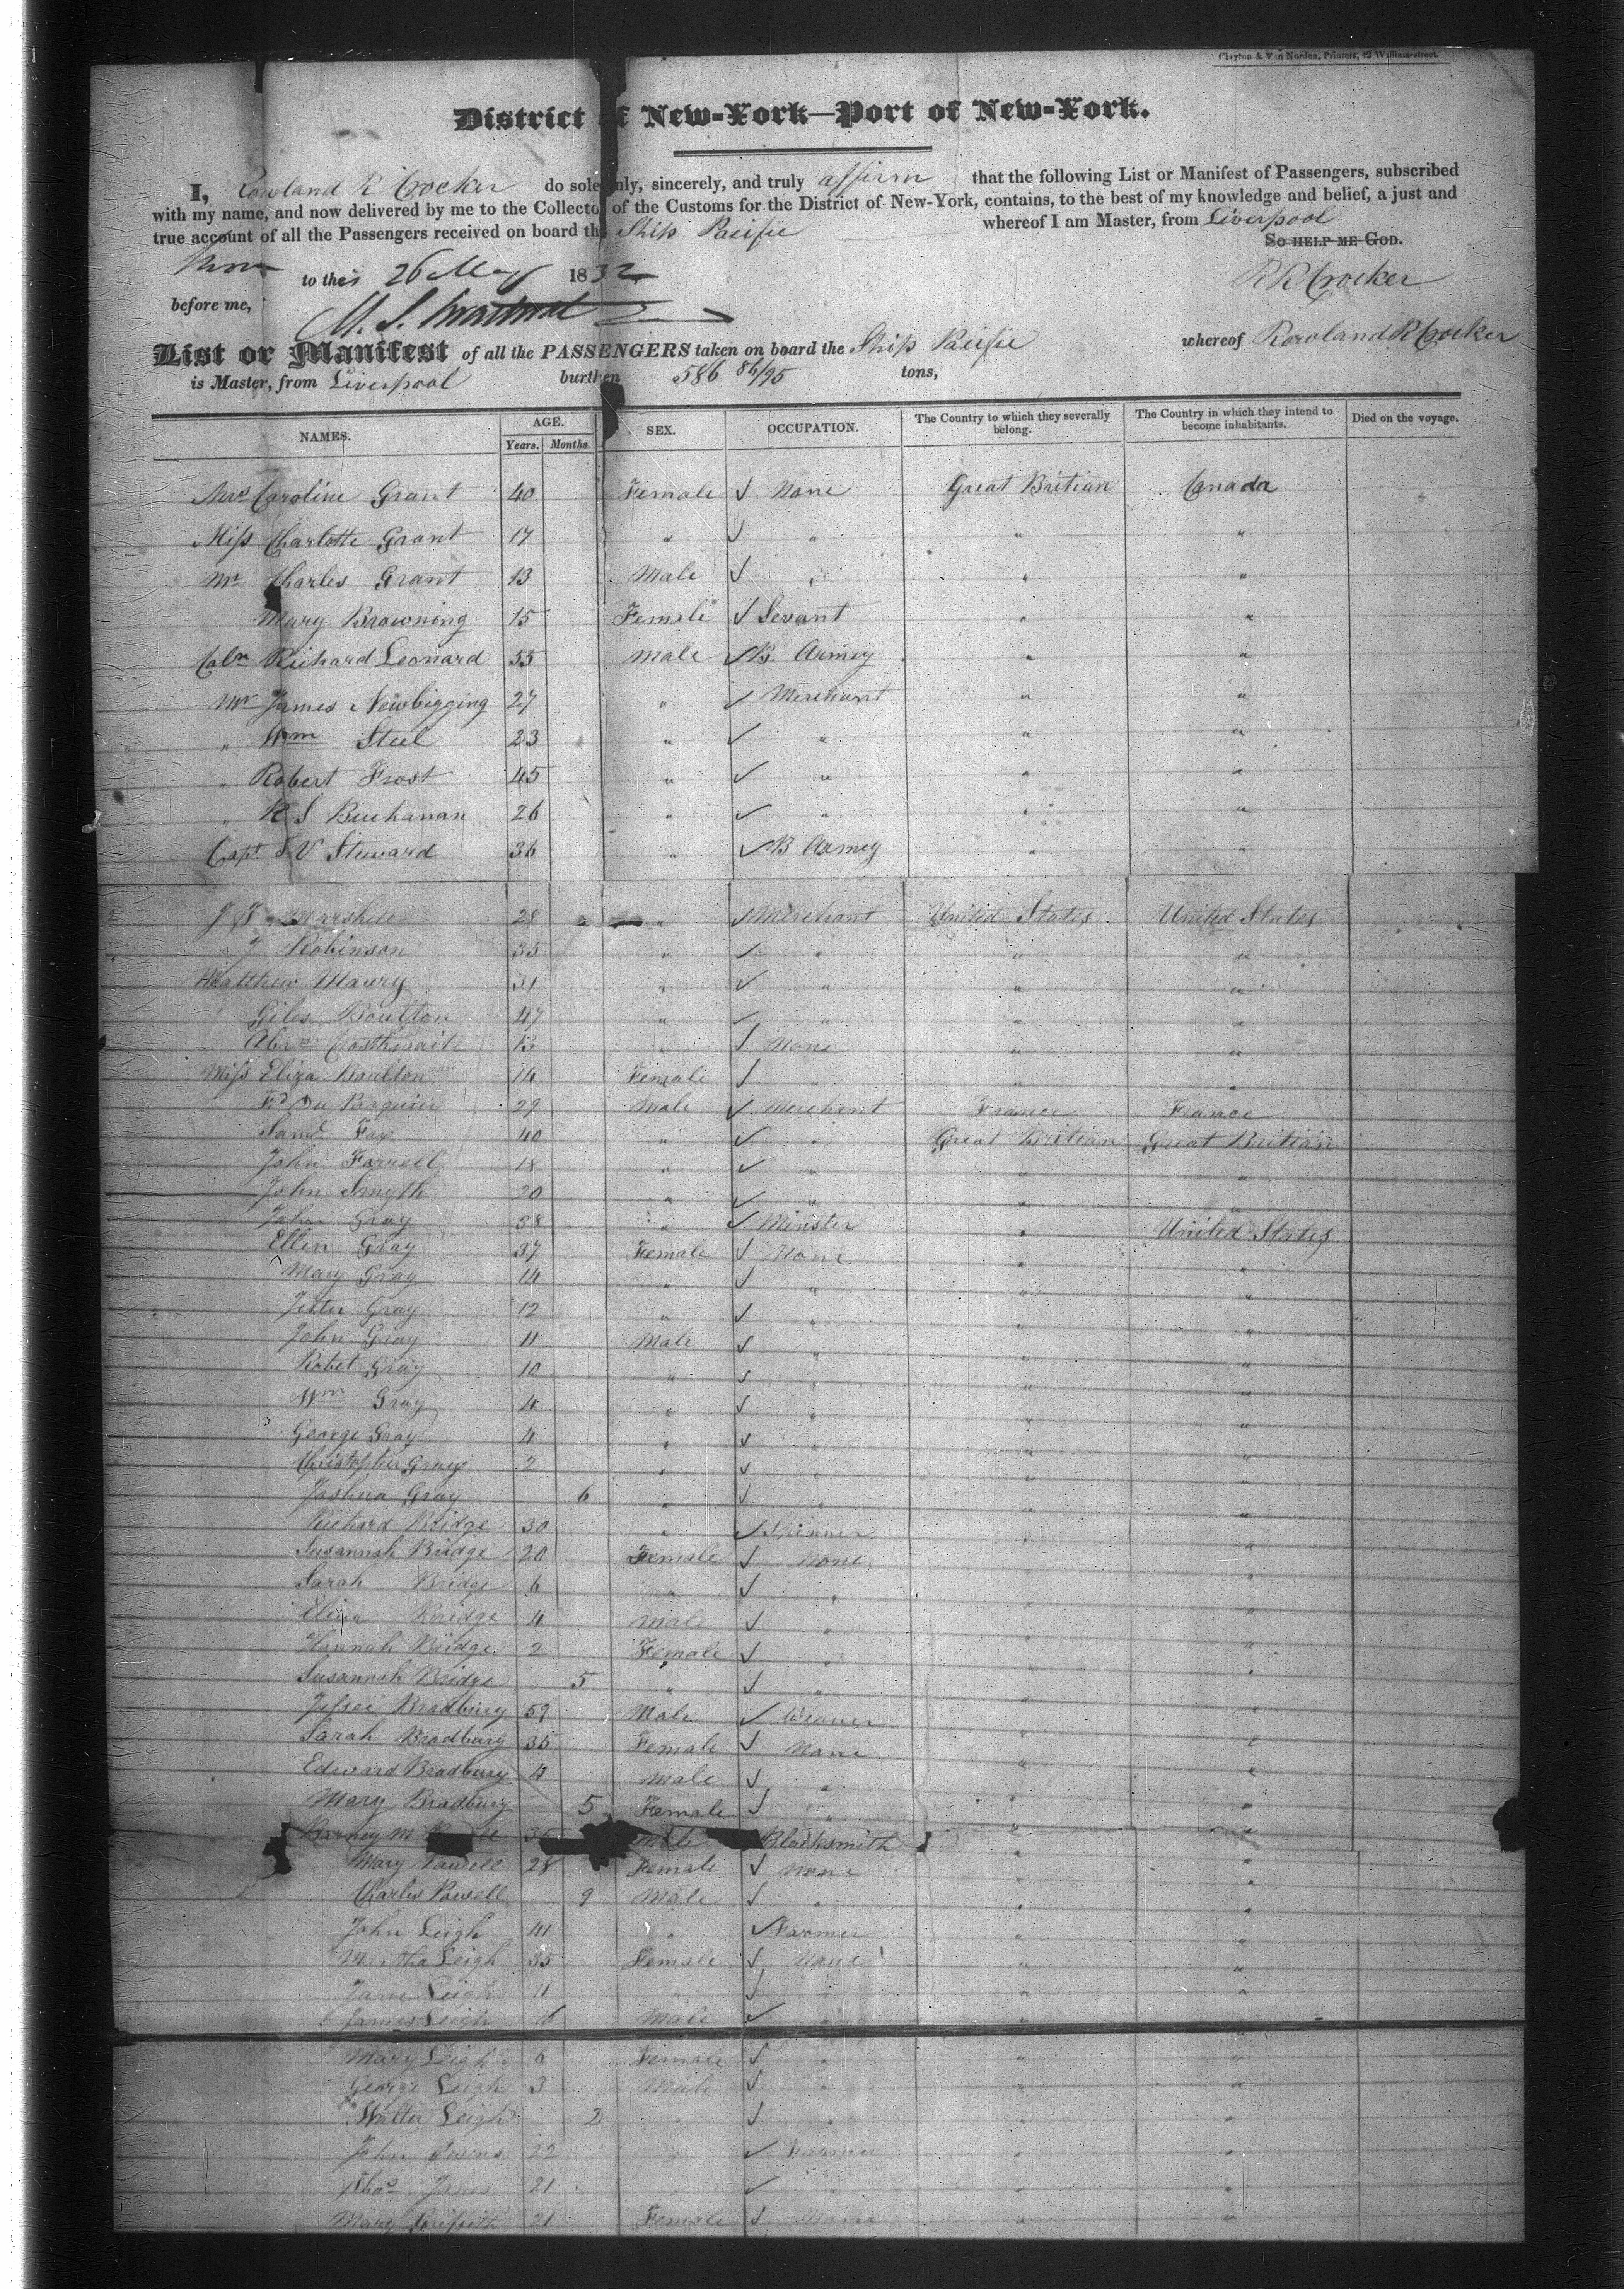 Clayton & Van Norden, Printers, 42 William-street.
District of New-York—Port of New-York.
I, Rowland R Crocker do solemnly, sincerely, and truly affirm that the following List or Manifest of Passengers, subscribed
with my name, and now delivered by me to the Collector of the Customs for the District of New-York, contains, to the best of my knowledge and belief, a just and
true account of all the Passengers received on board the Ship Pacific whereof I am Master, from Liverpool
So help me God.
to this 26 May 1832
R R Crocker
before me,
List or Manifest of all the PASSENGERS taken on board the Ship Pacific whereof Rowland R Crocker
is Master, from Liverpool burthen 586 86/95 tons,
NAMES. AGE. Years. Months SEX. OCCUPATION. The Country to which they severally belong. The Country in which they intend to become inhabitants. Died on the voyage.
Mrs Caroline Grant 40 Female ✓ None Great Britian Canada
Miss Charlotte Grant 17 " ✓ " " "
Mr Charles Grant 13 Male ✓ " " "
Mary Browning 15 Female ✓ Servant " "
Coln Richard Leonard 55 Male ✓ B. Armey " "
Mr James Newbigging 27 " ✓ Merchant " "
" Wm Steel 23 " ✓ " " "
" Robert Frost 45 " ✓ " " "
" R S Buchanan 26 " ✓ " " "
Capt S V Steward 36 " ✓ B Armey " "
28 " ✓ Merchant United States United States
J Robinson 35 " ✓ " " "
Matthew Maury 31 " ✓ " " "
Giles Boulton 47 " ✓ " " "
13 " ✓ None " "
Miss Eliza Boulton 14 Female ✓ " " "
Du Parquin 29 Male ✓ Merchant France France
Saml Fox 40 " ✓ " Great Britian Great Britian
John Farrell 18 " ✓ " " "
John Smyth 20 " ✓ " " "
John Gray 38 " ✓ Minster " United States
Ellen Gray 37 Female ✓ None " "
Mary Gray 14 " ✓ " " "
Gray 12 " ✓ " " "
John Gray 11 Male ✓ " " "
Robet Gray 10 " ✓ " " "
Wm Gray " ✓ " " "
George Gray 4 " ✓ " " "
Christopher Gray 2 " ✓ " " "
Joshua Gray 6 " ✓ " " "
Richard Bridge 30 " ✓ Spinner " "
Susannah Bridge 20 Female ✓ None " "
Sarah Bridge 6 " ✓ " " "
Bridge 4 Male ✓ " " "
Hannah Bridge 2 Female ✓ " " "
Susannah Bridge 5 " ✓ " " "
Bradbury 59 Male ✓ Weaver " "
Sarah Bradbury 35 Female ✓ None " "
Edward Bradbury Male ✓ " " "
Mary Bradbury 5 Female ✓ " " "
Barney M 35 Male Blacksmith " "
Mary Powell 28 Female ✓ None " "
Charles Powell 9 Male ✓ " " "
John Leigh 41 " ✓ Farmer " "
Martha Leigh 35 Female ✓ None " "
Jane Leigh 11 " ✓ " " "
James Leigh Male ✓ " " "
Mary Leigh 6 Female ✓ " " "
George Leigh 3 Male ✓ " " "
Walter Leigh 2 " ✓ " " "
John Owens 22 " ✓ Farmer " "
Thos Jones 21 " ✓ " " "
Mary Griffith 21 Female ✓ None " "